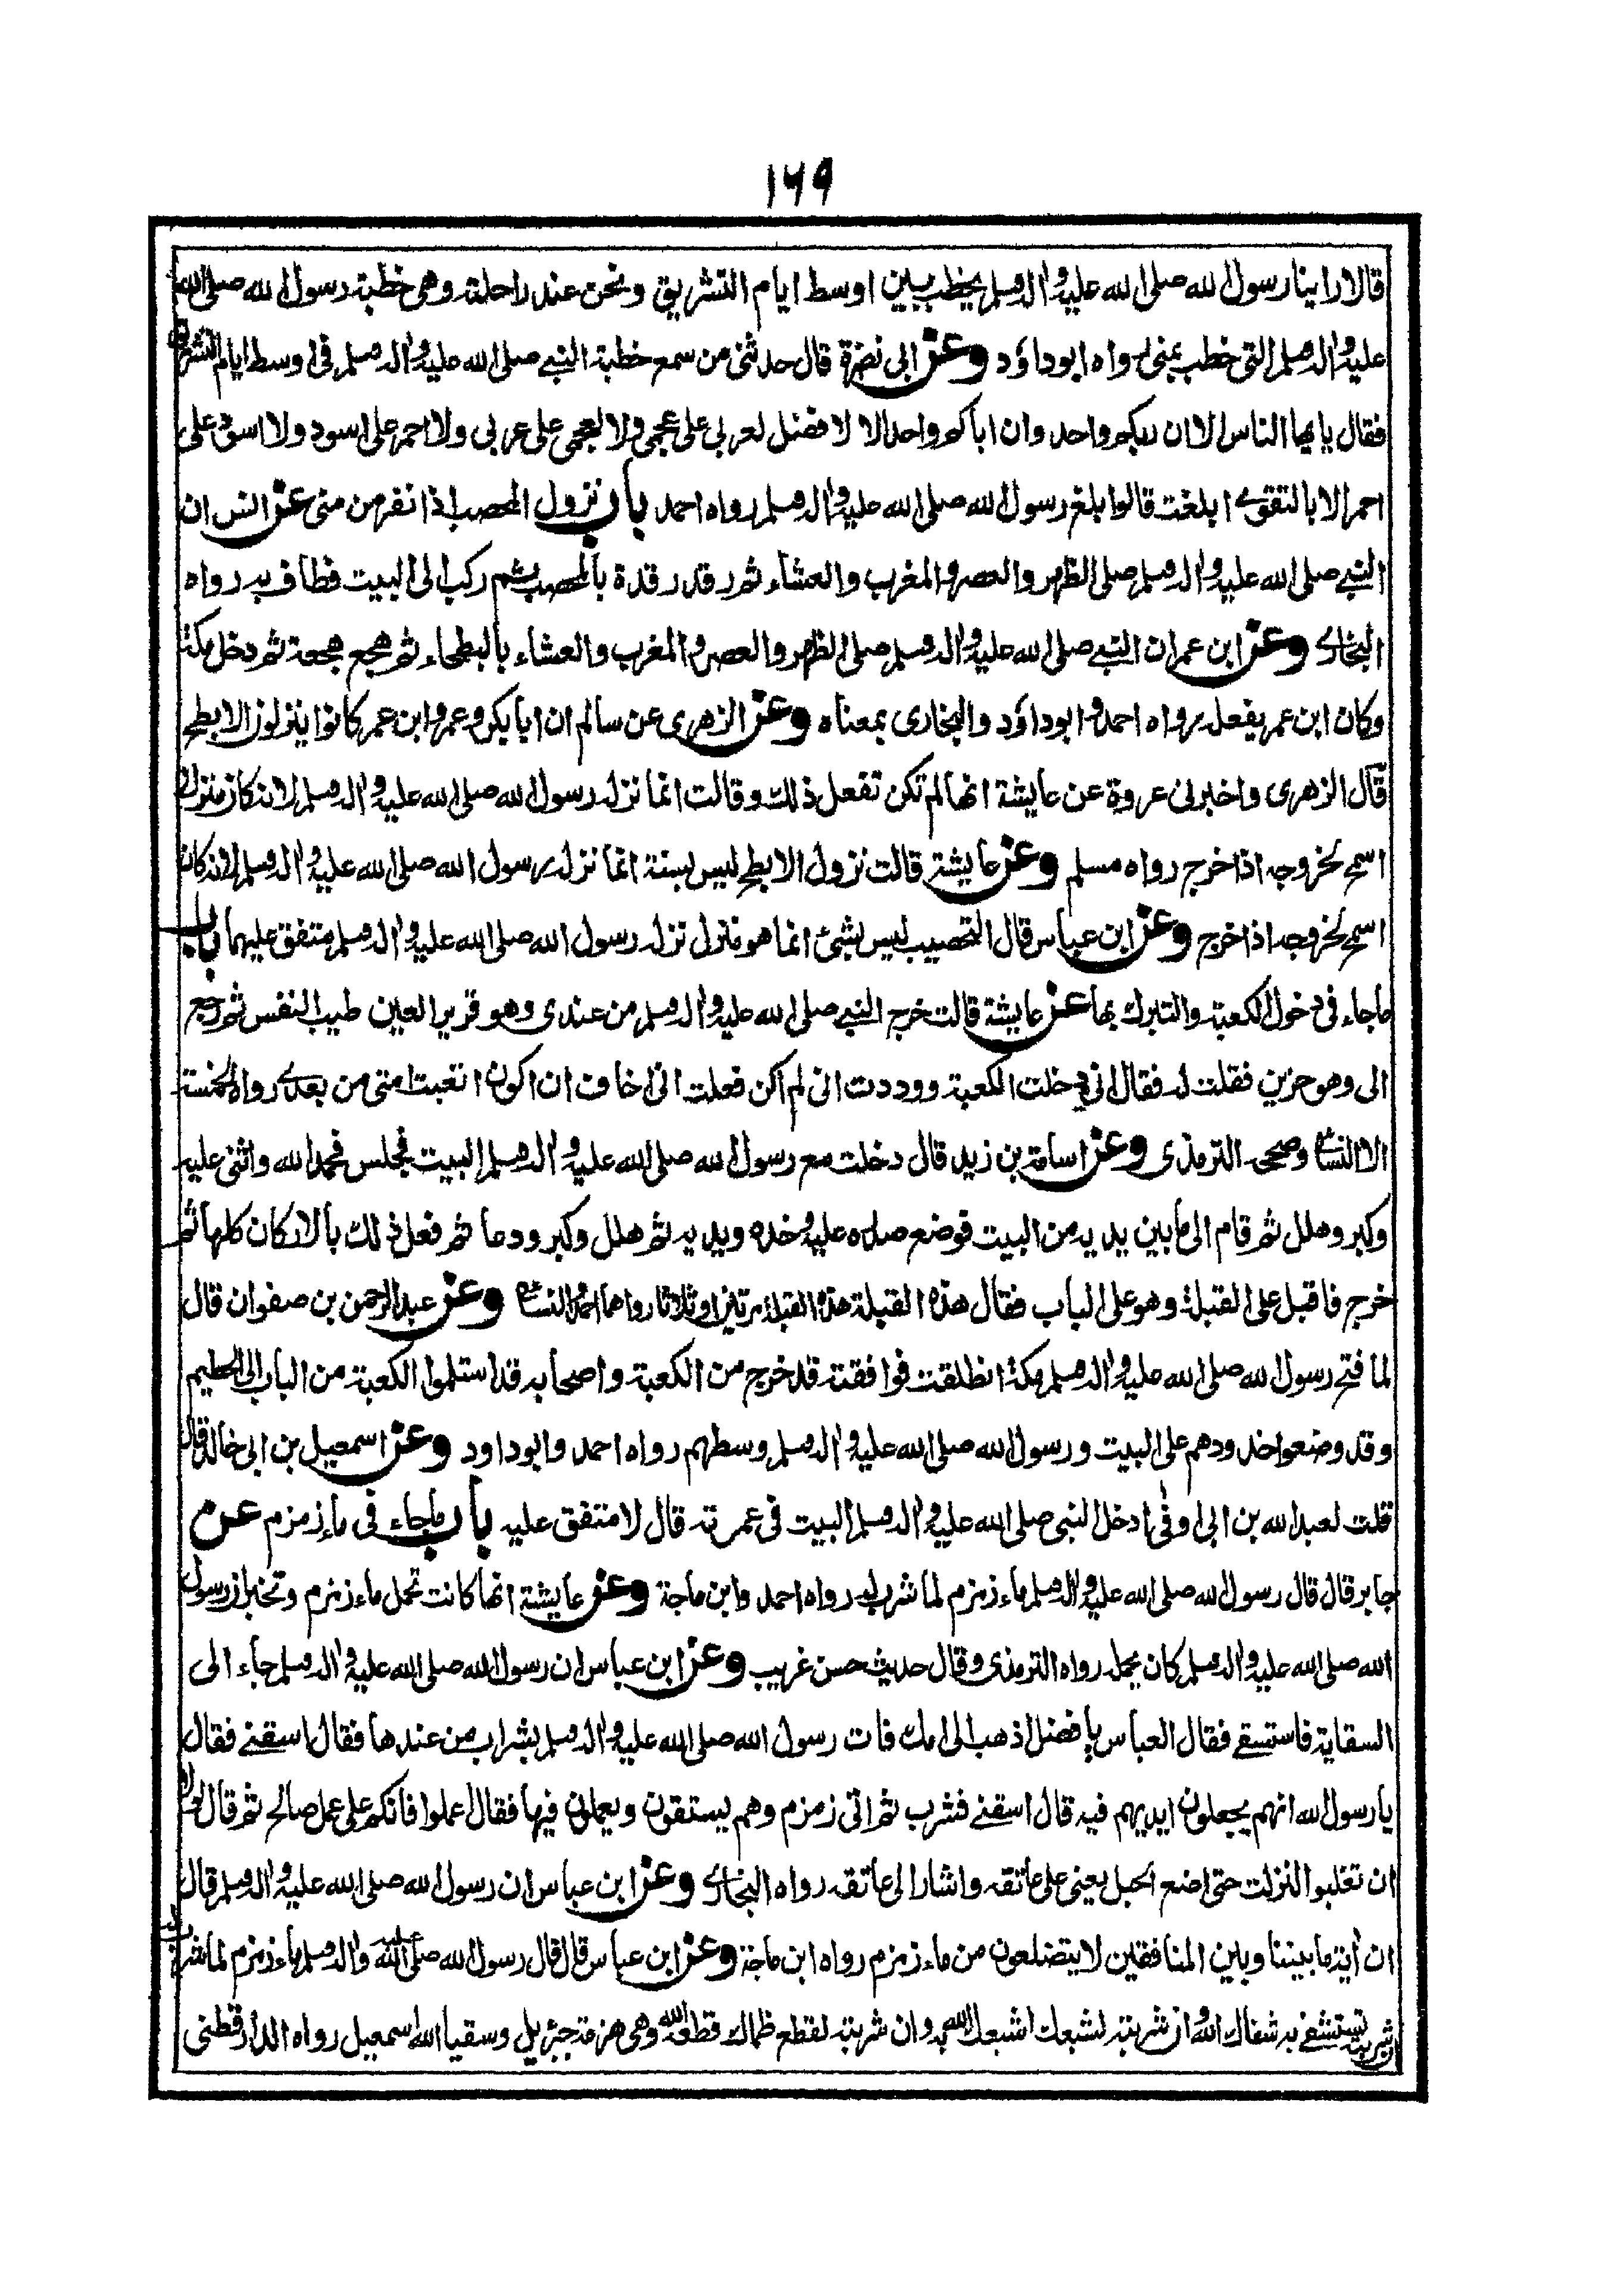 ١٦٩
قالا راينا رسول الله صلى الله عليه واله وسلم يخطب بين اوسط ايام التشريق ونحن عند راحلته وهى خطبة رسول الله صلى الله
عليه واله وسلم التى خطب بمنى رواه ابوداؤد وعن ابى نضرة قال حدثنى من سمع خطبة النبى صلى الله عليه واله وسلم فى اوسط ايام التشريق
فقال يايها الناس الا ان ربكم واحد وان اباكم واحد الا لا فضل لعربى على عجمى ولا لعجمى على عربى ولا احمر على اسود ولا اسود على
احمر الا بالتقوى ابلغت قالوا بلغ رسول الله صلى الله عليه واله وسلم رواه احمد باب نزول المحصب اذا نفر من منى عن انس ان
النبى صلى الله عليه واله وسلم صلى الظهر والعصر والمغرب والعشاء ثم رقد رقدة بالمحصب ثم ركب الى البيت فطاف به رواه
البخارى وعن ابن عمر ان النبى صلى الله عليه واله وسلم صلى الظهر والعصر والمغرب والعشاء بالبطحاء ثم هجع هجعة ثم دخل مكة
وكان ابن عمر يفعله رواه احمد وابوداؤد والبخارى بمعناه وعن الزهرى عن سالم ان ابابكر وعمر وابن عمر كانوا ينزلون الابطح
قال الزهرى واخبرنى عروة عن عايشة انها لم تكن تفعل ذلك وقالت انما نزله رسول الله صلى الله عليه واله وسلم لانه كان منزلا
اسمح لخروجه اذا خرج رواه مسلم وعن عايشة قالت نزول الابطح ليس بسنة انما نزله رسول الله صلى الله عليه واله وسلم لانه كان
اسمح لخروجه اذا خرج وعن ابن عباس قال التحصيب ليس بشئ انما هو منزل نزله رسول الله صلى الله عليه واله وسلم متفق عليهما باب
ماجاء فى دخول الكعبة والتبرك بها عن عايشة قالت خرج النبى صلى الله عليه واله وسلم من عندى وهو قرير العين طيب النفس ثم رجع
الى وهو حزين فقلت له فقال انى دخلت الكعبة ووددت انى لم اكن فعلت انى اخاف ان اكون اتعبت امتى من بعدى رواه الخمسة
الا النسائى وصححه الترمذى وعن اسامة بن زيد قال دخلت مع رسول الله صلى الله عليه واله وسلم البيت فجلس فحمد الله واثنى عليه
وكبر وهلل ثم قام الى مابين يديه من البيت فوضع صدره عليه وخده ويديه ثم هلل وكبر ودعا ثم فعل ذلك بالاركان كلها ثم
خرج فاقبل على القبلة وهو على الباب فقال هذه القبلة هذه القبلة مرتين اوثلاثا رواهما احمد والنسائى وعن عبدالرحمن بن صفوان قال
لما فتح رسول الله صلى الله عليه واله وسلم مكة انطلقت فوافقته قد خرج من الكعبة واصحابه قد استلموا الكعبة من الباب الى الحطيم
وقد وضعوا خدودهم على البيت ورسول الله صلى الله عليه واله وسلم وسطهم رواه احمد وابوداود وعن اسمعيل بن ابى خالد قال
قلت لعبد الله بن ابى اوفى ادخل النبى صلى الله عليه واله وسلم البيت فى عمرته قال لا متفق عليه باب ماجاء فى ماء زمزم عن
جابر قال قال رسول الله صلى الله عليه واله وسلم ماء زمزم لما شرب له رواه احمد وابن ماجة وعن عايشة انها كانت تحمل ماء زمزم وتخبر ان رسول
الله صلى الله عليه واله وسلم كان يحمله رواه الترمذى وقال حديث حسن غريب وعن ابن عباس ان رسول الله صلى الله عليه واله وسلم جاء الى
السقاية فاستسقى فقال العباس يا فضل اذهب الى امك فات رسول الله صلى الله عليه واله وسلم بشراب من عندها فقال اسقنى فقال
يا رسول الله انهم يجعلون ايديهم فيه قال اسقنى فشرب ثم اتى زمزم وهم يستقون ويعملون فيها فقال اعملوا فانكم على عمل صالح ثم قال لولا
ان تغلبوا لنزلت حتى اضع الحبل يعنى على عاتقه واشار الى عاتقه رواه البخارى وعن ابن عباس ان رسول الله صلى الله عليه واله وسلم قال
ان اية مابيننا وبين المنافقين لا يتضلعون من ماء زمزم رواه ابن ماجة وعن ابن عباس قال قال رسول الله صلى الله عليه واله وسلم ماء زمزم لما شرب له
ان شربته تستشفى به شفاك الله وان شربته لشبعك اشبعك الله به وان شربته لقطع ظماك قطعه الله وهى هزمة جبرئيل وسقيا الله اسمعيل رواه الدارقطنى